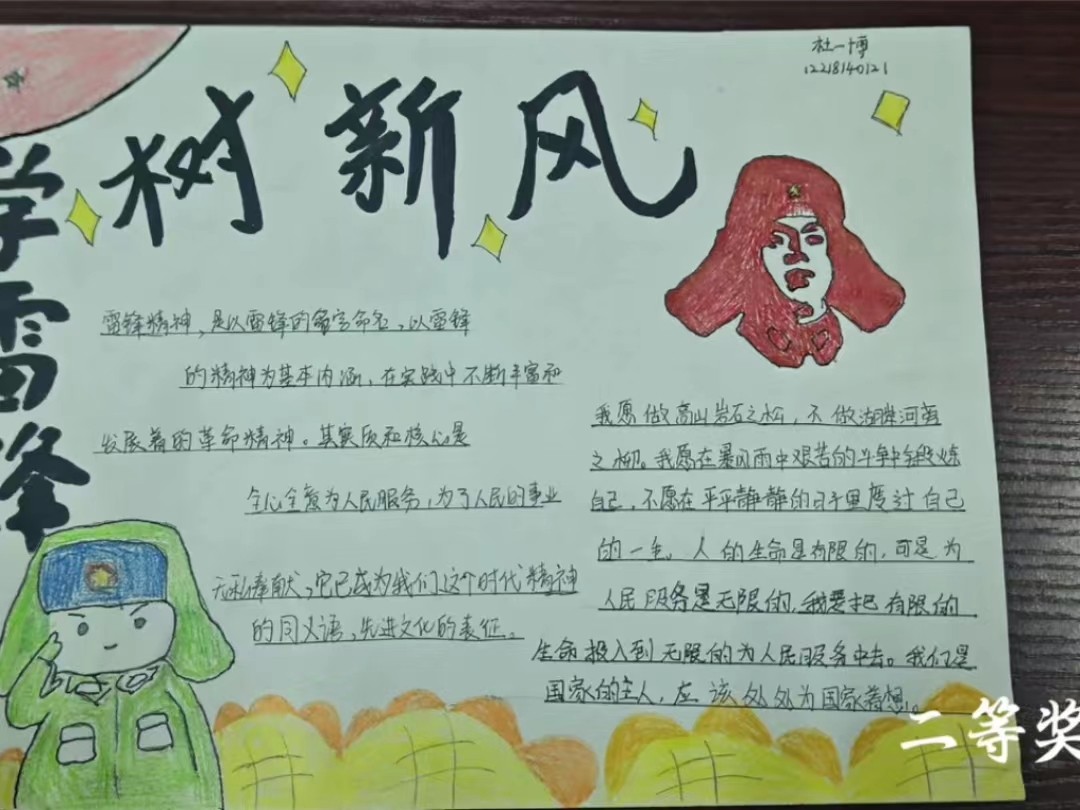 杜一博
1221814012 1
学雷锋
树新风
雷锋精神，是以雷锋的名字命名，以雷锋
的精神为基本内涵，在实践中不断丰富和
发展着的革命精神。其实质和核心是
全心全意为人民服务，为了人民的事业
无私奉献，它已成为我们这个时代精神
的同义语、先进文化的表征。
我愿做高山岩石之松，不做湖畔河旁
之柳。我愿在暴风雨中艰苦的斗争中锻炼
自己，不愿在平平静静的日子里度过自己
的一生。人的生命是有限的，可是为
人民服务是无限的，我要把有限的
生命投入到无限的为人民服务中去。我们是
国家的主人，应该处处为国家着想。
二等奖